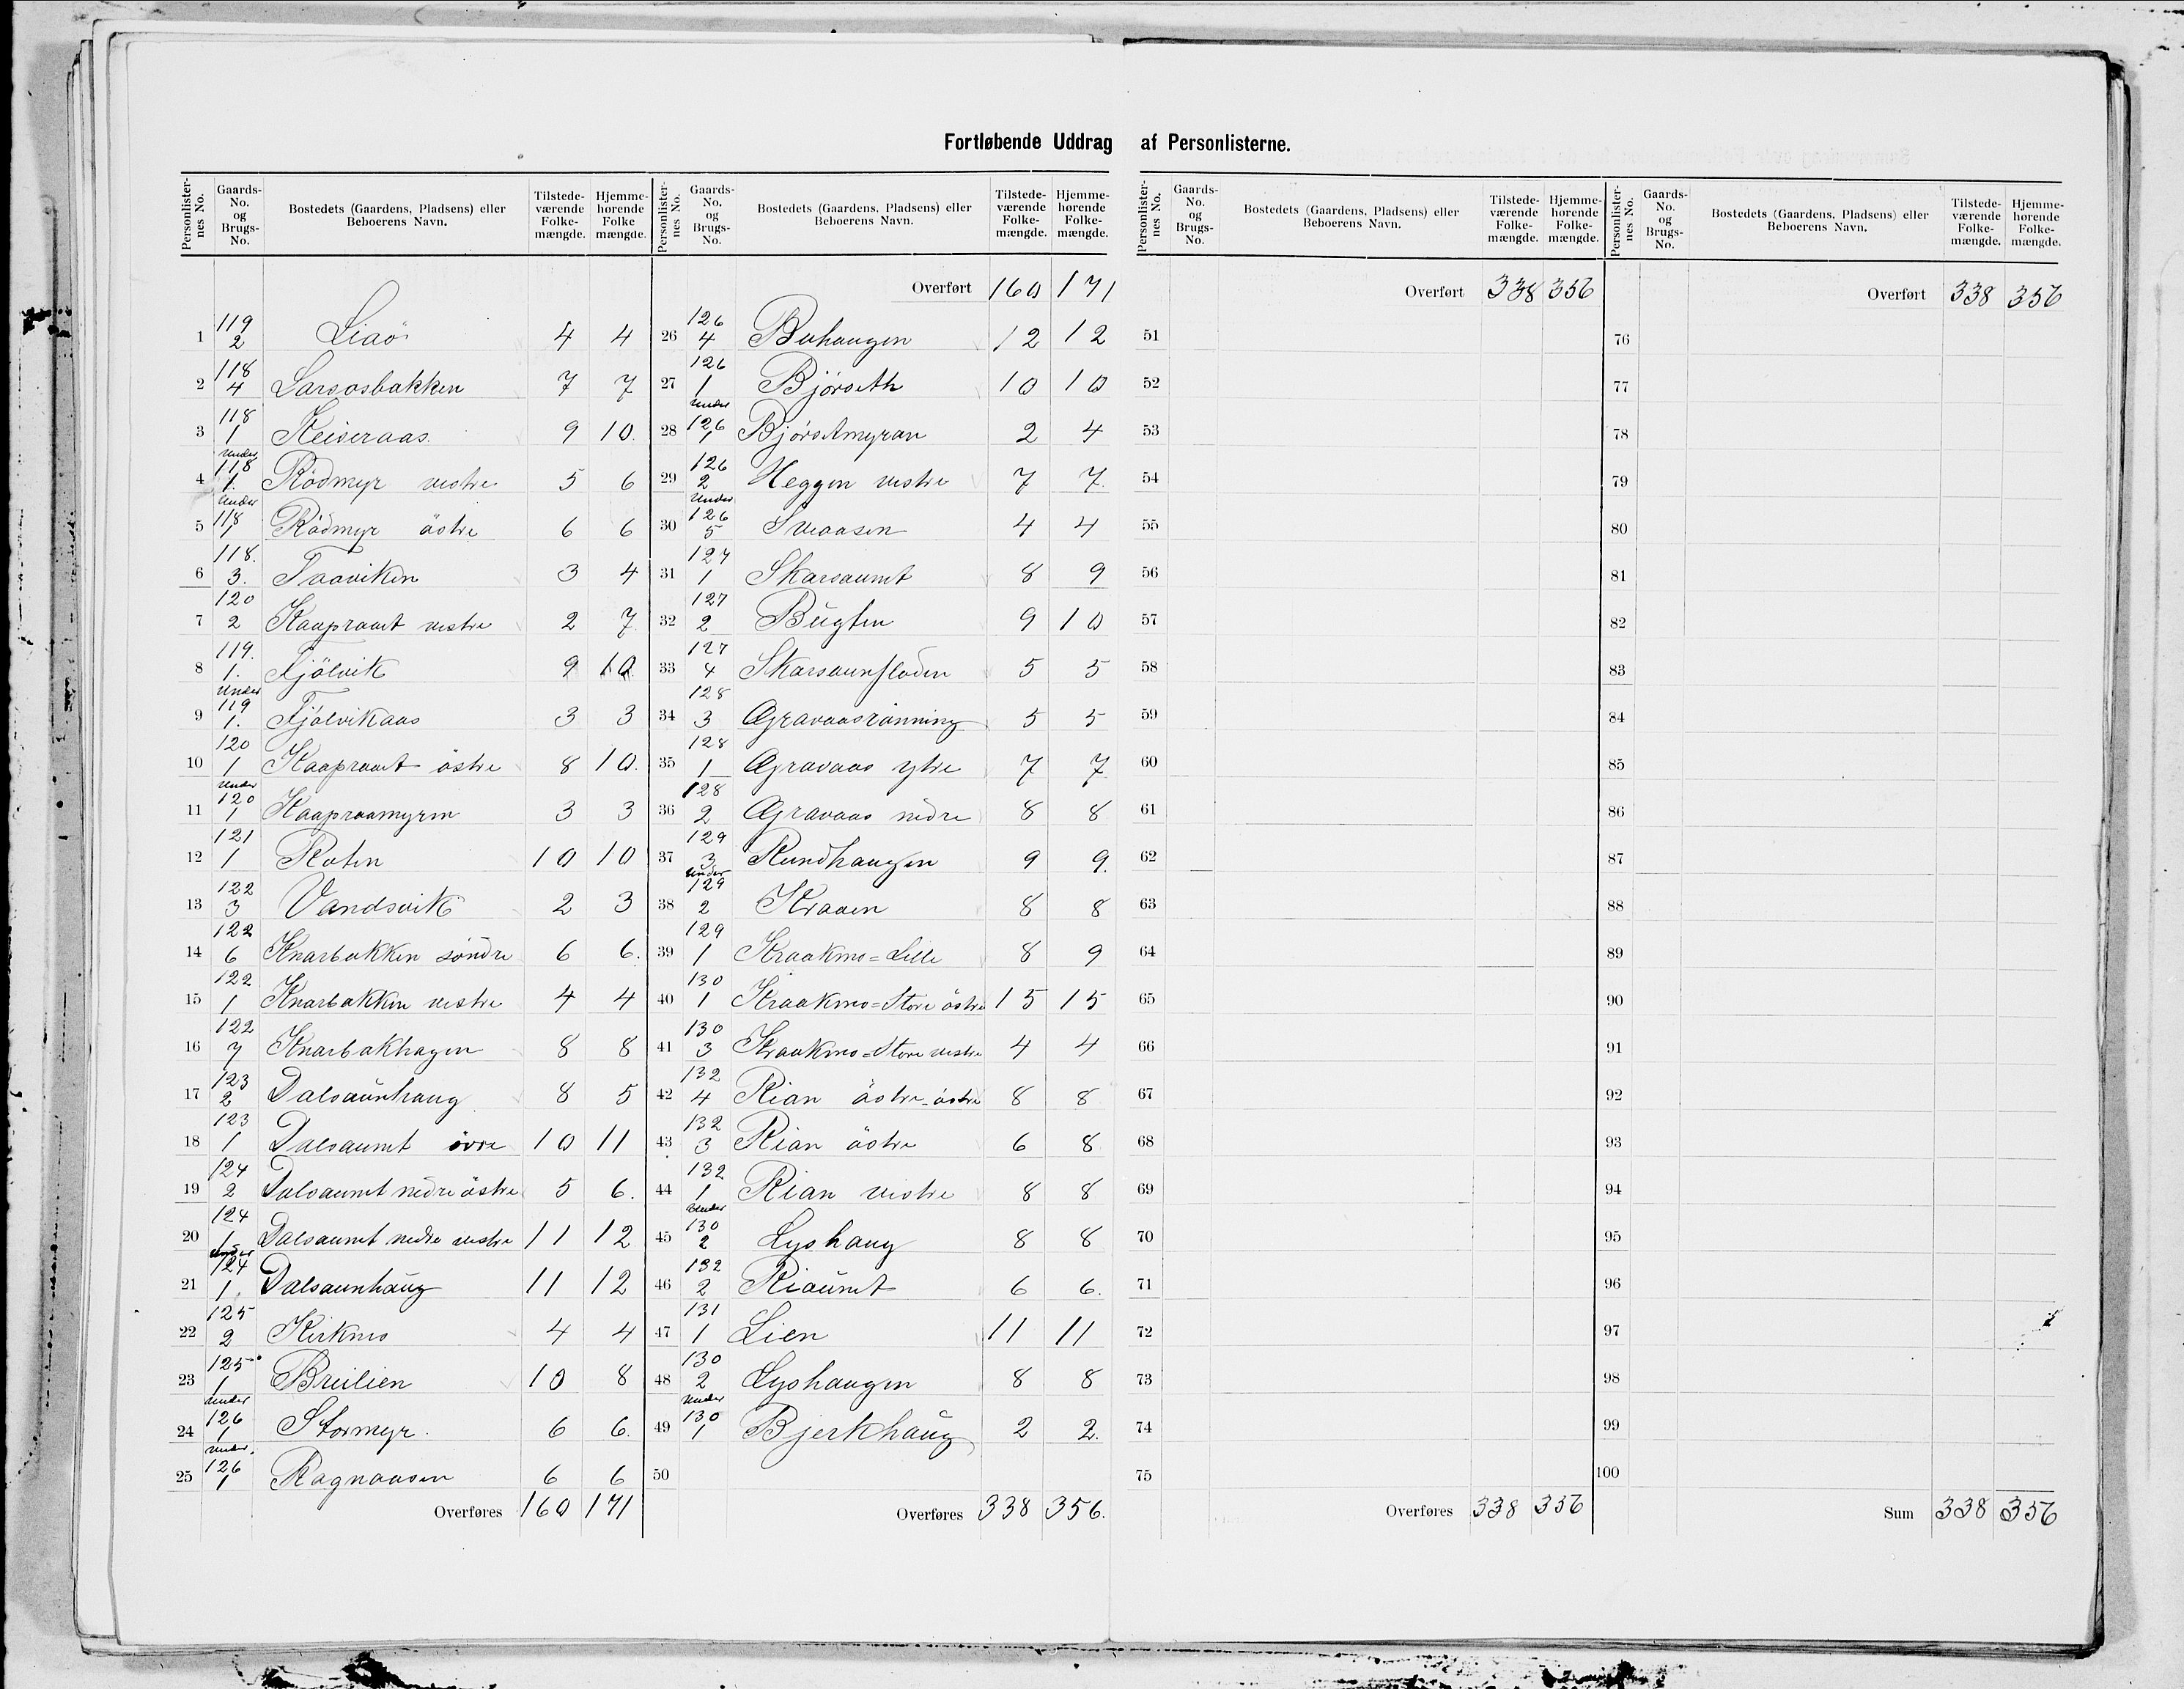 Fortløbende Uddrag af Personlisterne.
Personlister-nes No. | Gaards-No. og Brugs-No. | Bostedets (Gaardens, Pladsens) eller Beboerens Navn. | Tilstede-værende Folke-mængde. | Hjemme-hørende Folke mængde.
1 119 2 Liaö 4 4
2 118 4 Sarsosbakken 7 7
3 118 1 Keiseraas 9 10.
4 Under 118 1. Rödmyr vestre 5 6
5 Under 118 1 Rödmyr östre 6 6
6 118. 3. Taaviken 3 4
7 120 2 Kaapraaet vestre 2 7
8 119. 1. Fjölvik 9 10
9 Under 119 1. Fjölvikaas 3 3
10 120 1 Kaapraaet östre 8 10.
11 Under 120 1 Kaapraamyren 3 3
12 121 1 Roten 10 10
13 122 3 Vandsvik 2 3
14 122 6 Knarbakken söndre 6 6.
15 122 1 Knarbakken vestre 4 4
16 122 7 Knarbakhagen 8 8
17 123 2 Dalsaunhaug 8 5
18 123 1 Dalsaunet övre 10 11
19 124 2 Dalsaunet nedre östre 5 6.
20 124 1 Dalsaunet nedre vestre 11 12
21 Under 124 1. Dalsaunhaug 11 12
22 125 2 Kirkmo 4 4
23 125 1 Breilien 10 8
24 Under 126 1 Stormyr. 6 6.
25 Under 126 1 Ragnaasen 6 6
Overføres 160 171
Personlister-nes No. | Gaards-No. og Brugs-No. | Bostedets (Gaardens, Pladsens) eller Beboerens Navn. | Tilstede-værende Folke-mængde. | Hjemme-hørende Folke-mængde.
Overført 160 171
26 126 4 Buhaugen 12 12
27 126 1 Björseth 10 10
28 Under 126 1 Björsetmyran 2 4
29 126 2 Heggen vestre 7 7.
30 Under 126 5 Sveaasen 4 4
31 127 1 Skarsaunet 8 9
32 127 2 Bugten 9 10
33 127 4 Skarsaunfloden 5 5
34 128 3 Gravaasrönning 5 5
35 128 1 Gravaas ytre 7 7
36 128 2 Gravaas nedre 8 8
37 129 3 Rundhaugen 9 9.
38 Under 129 2 Kraaen 8 8
39 129 1 Kraakmo=Lille 8 9
40 130 1 Kraakmo=Store östre 15 15
41 130 3 Kraakmo=Store vestre 4 4
42 132 4 Rian östre-östre 8 8
43 132 3 Rian östre 6 8
44 132 1 Rian vestre 8 8
45 Under 130 2 Lyshaug 8 8
46 132 2 Riaunet 6 6.
47 131 1 Lien 11 11
48 130 2 Lyshaugen 8 8
49 Under 130 1 Bjerkhaug 2 2.
50
Overføres 338 356.
Personlister-nes No. | Gaards-No. og Brugs-No. | Bostedets (Gaardens, Pladsens) eller Beboerens Navn. | Tilstede-værende Folke-mængde. | Hjemme-hørende Folke-mængde.
Overført 338 356
51
52
53
54
55
56
57
58
59
60
61
62
63
64
65
66
67
68
69
70
71
72
73
74
75
Overføres 338 356
Personlister-nes No. | Gaards-No. og Brugs-No. | Bostedets (Gaardens, Pladsens) eller Beboerens Navn. | Tilstede-værende Folke-mængde. | Hjemme-hørende Folke-mængde.
Overført 338 356
76
77
78
79
80
81
82
83
84
85
86
87
88
89
90
91
92
93
94
95
96
97
98
99
100
Sum 338 356